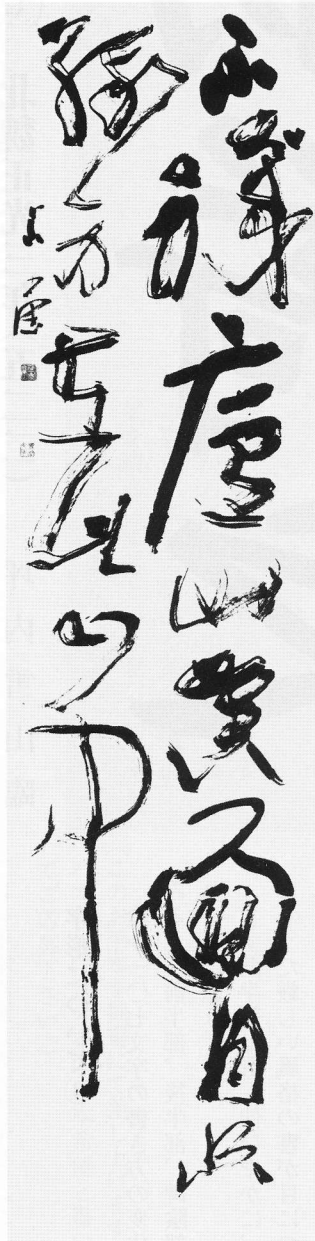 不識廬山真面目只
緣身在此山中